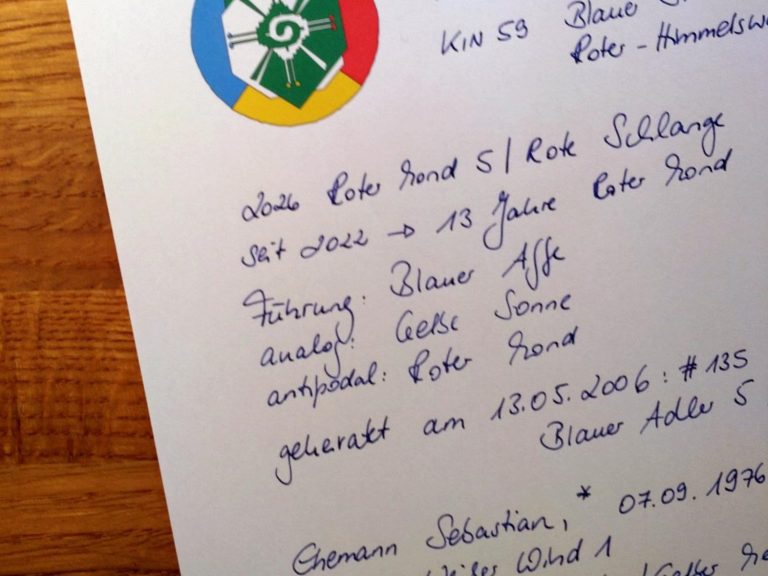 KIN 59 Blauer
Roter-Himmelsw
2026 Roter Mond 5 / Rote Schlange
seit 2022 → 13 Jahre Roter Mond
Führung: Blauer Affe
analog: Gelbe Sonne
antipodal: Roter Mond
geheiratet am 13.05.2006: #135
Blauer Adler 5
Ehemann Sebastian, * 07.09.1976
Weißer Wind 1
Gelber